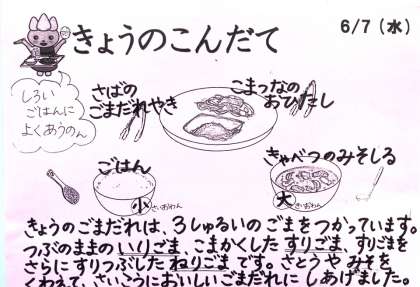 きょうのこんだて
6/7 (水)
しろい
ごはんに
よくあうのん
さばの
ごまだれやき
こまつなの
おひたし
ごはん
小
きゃべつのみそしる
大
きょうのごまだれは、3しゅるいのごまをつかっています。
つぶのままのいりごま、こまかくしたすりごま、すりごまを
さらにすりつぶしたねりごまです。さとうやみそを
くわえて、さいこうにおいしいごまだれにしあげました。